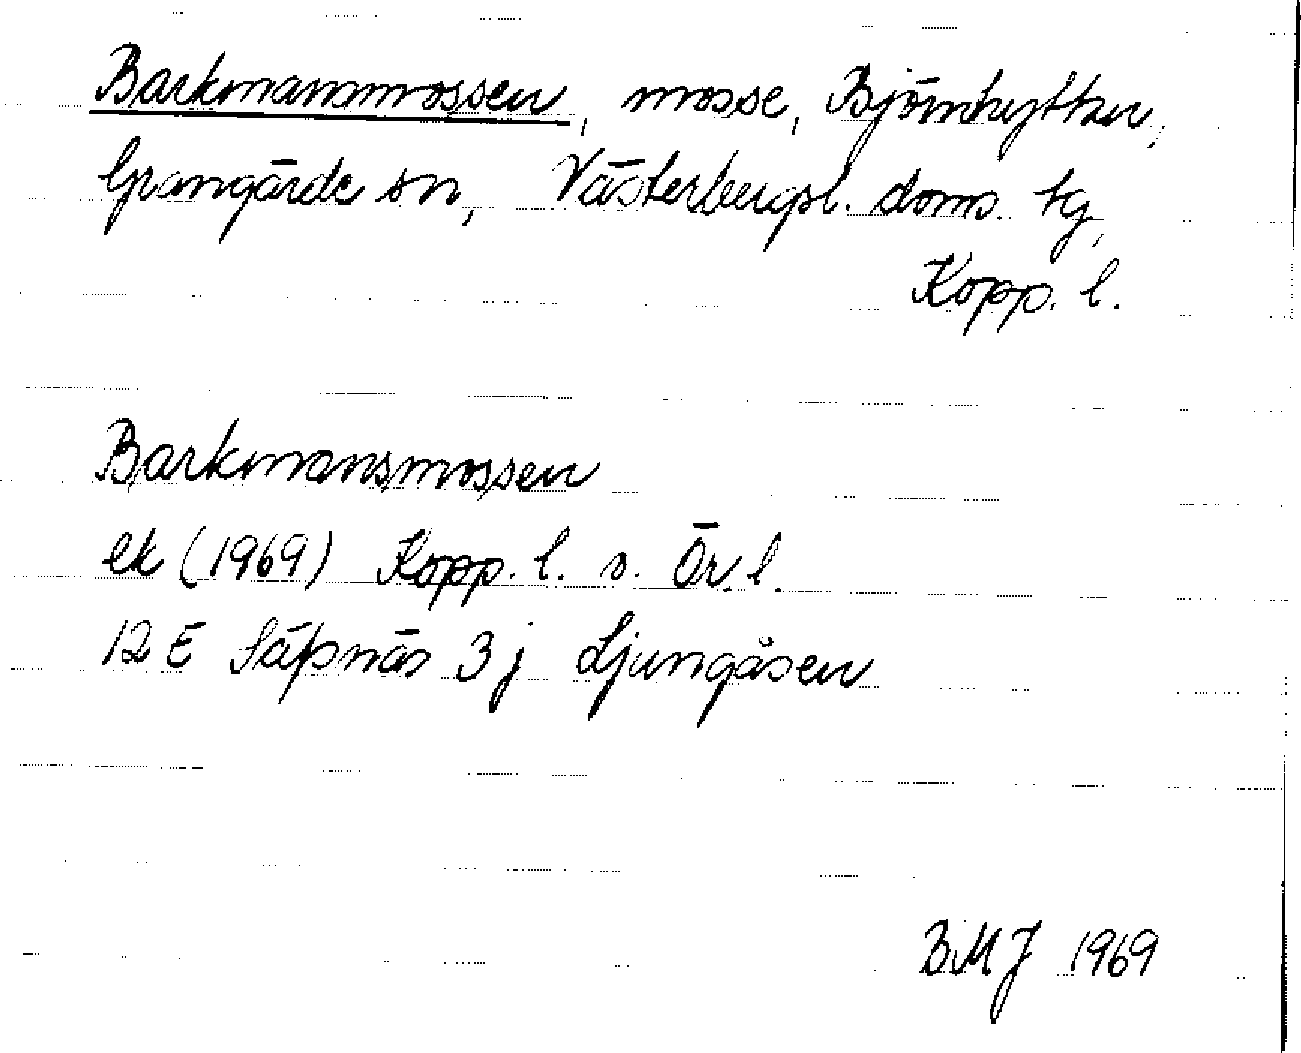 Barkmansmossen, mosse, Björnhyttan,
Grangärde sn, Västerbergsl. doms. tg,
Kopp. l.
Barkmansmossen
ek (1969) Kopp. l. o. Ör. l.
12 E Säfsnäs 3 j Ljungåsen
BMJ 1969